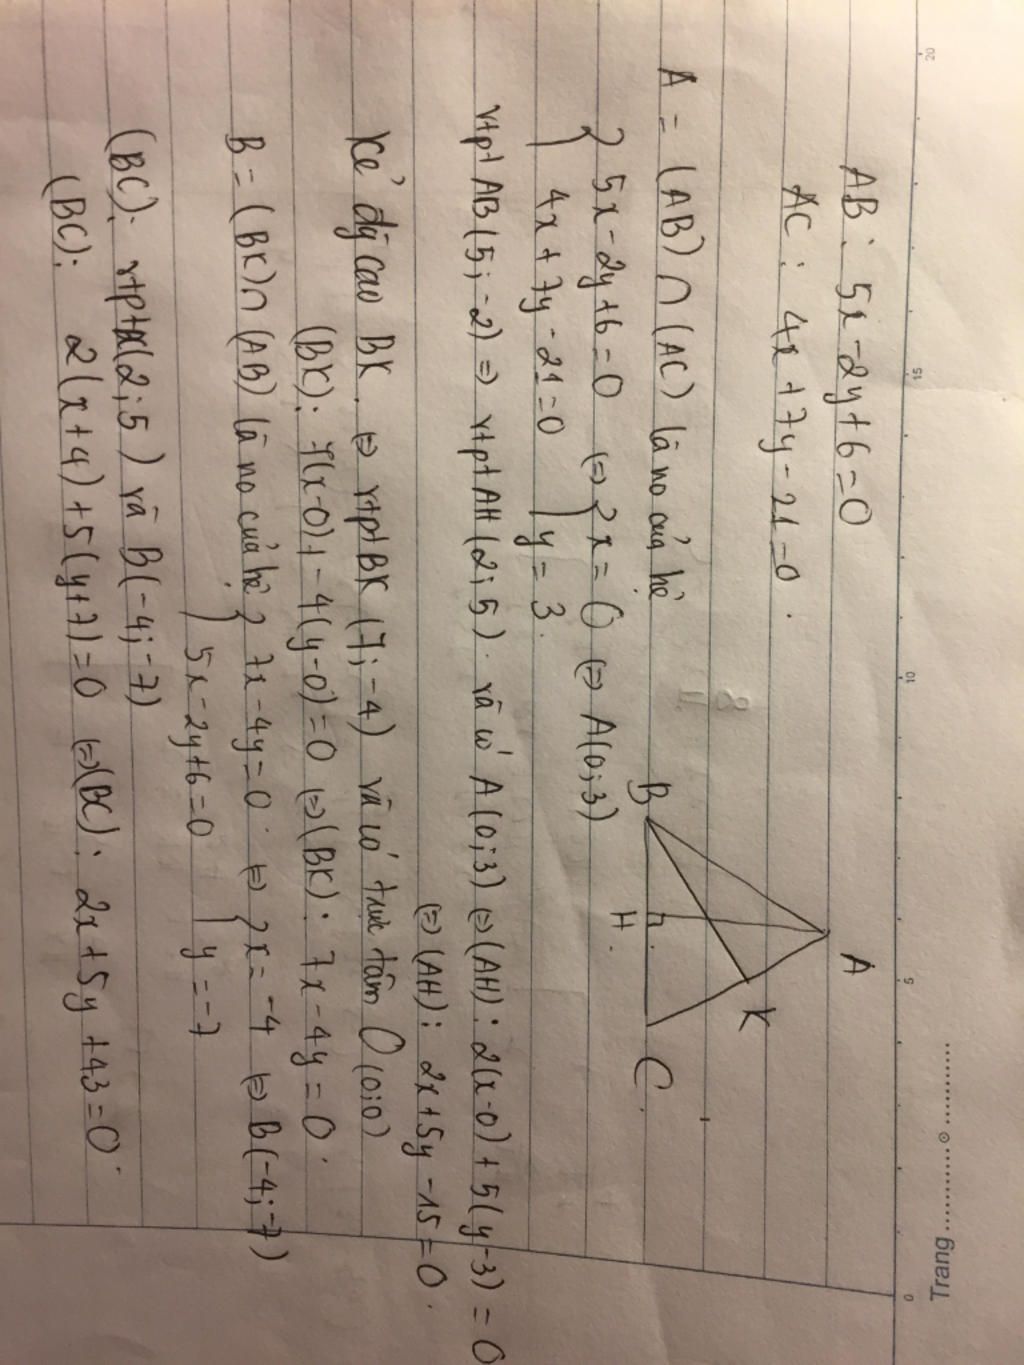 Trang
20 15 10 5 0
AB: 5x - 2y + 6 = 0
AC: 4x + 7y - 21 = 0.
A
K
B H C
A = (AB) ∩ (AC) là no của hệ
{ 5x - 2y + 6 = 0 ⇔ { x = 0 ⇔ A(0;3)
4x + 7y - 21 = 0 y = 3.
vtpt AB(5;-2) ⇒ vtpt AH(2;5). và có A(0;3) ⇔ (AH): 2(x-0) + 5(y-3) = 0
⇔ (AH): 2x + 5y - 15 = 0.
Kẻ đg cao BK. ⇔ vtpt BK (7;-4) và có trực tâm O(0;0)
(BK): 7(x-0) + -4(y-0) = 0 ⇔ (BK): 7x - 4y = 0.
B = (BK) ∩ (AB) là no của hệ { 7x - 4y = 0. ⇔ { x = -4 ⇔ B(-4;-7)
5x - 2y + 6 = 0 y = -7
(BC): vtpt (2;5) và B(-4;-7)
(BC): 2(x+4) + 5(y+7) = 0 ⇔ (BC): 2x + 5y + 43 = 0.